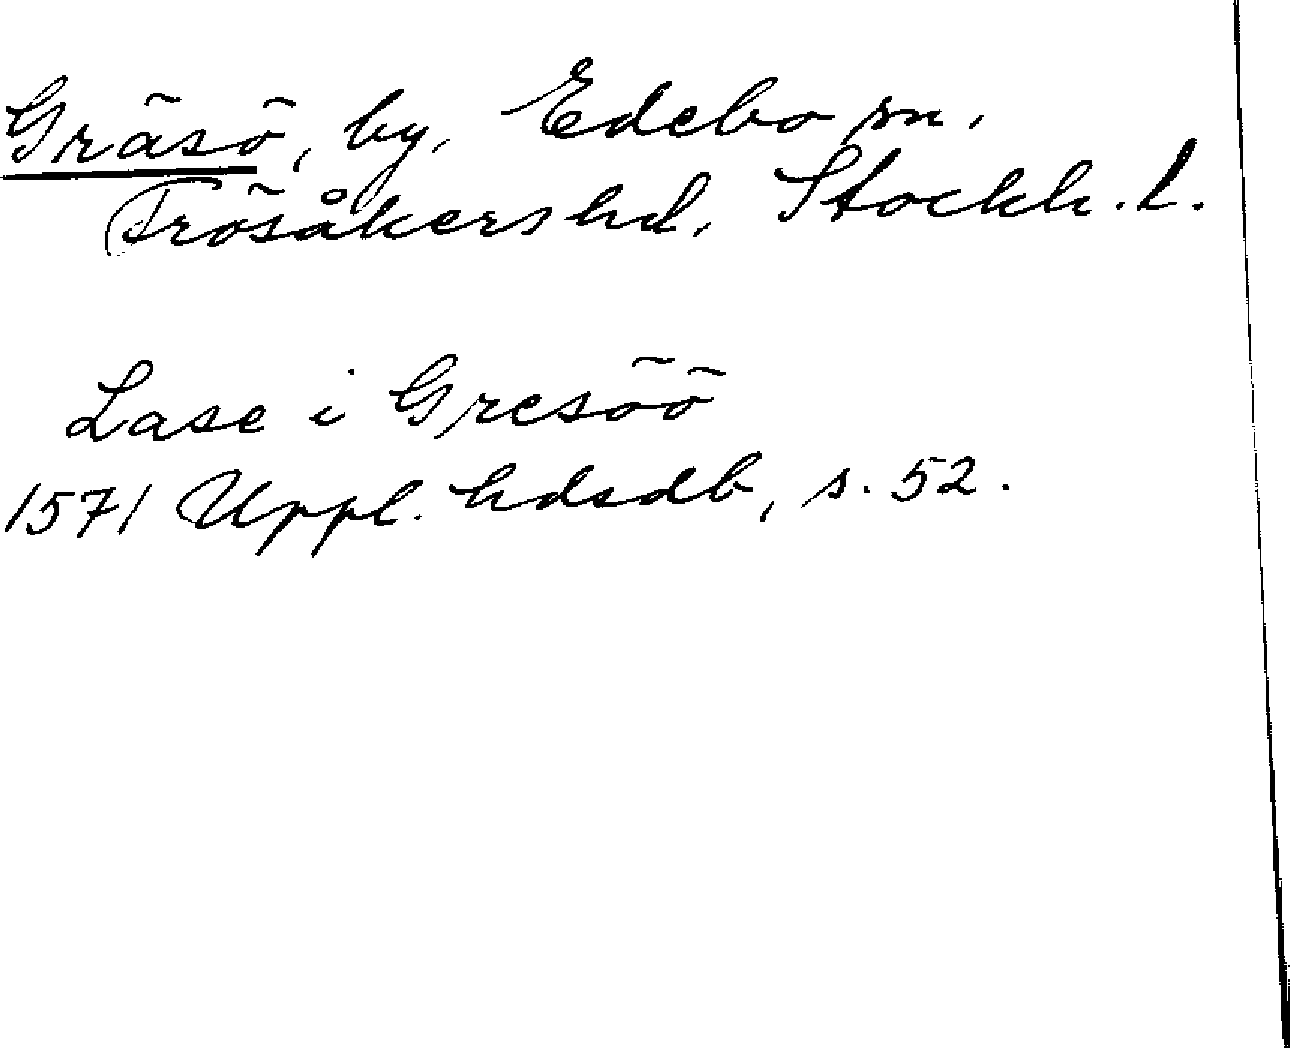 Gräsö, by, Edebo sn.
Frösåkers hd, Stockh. l.
Lasse i Gresöö
1571 Uppl. hdsdb, s. 52.